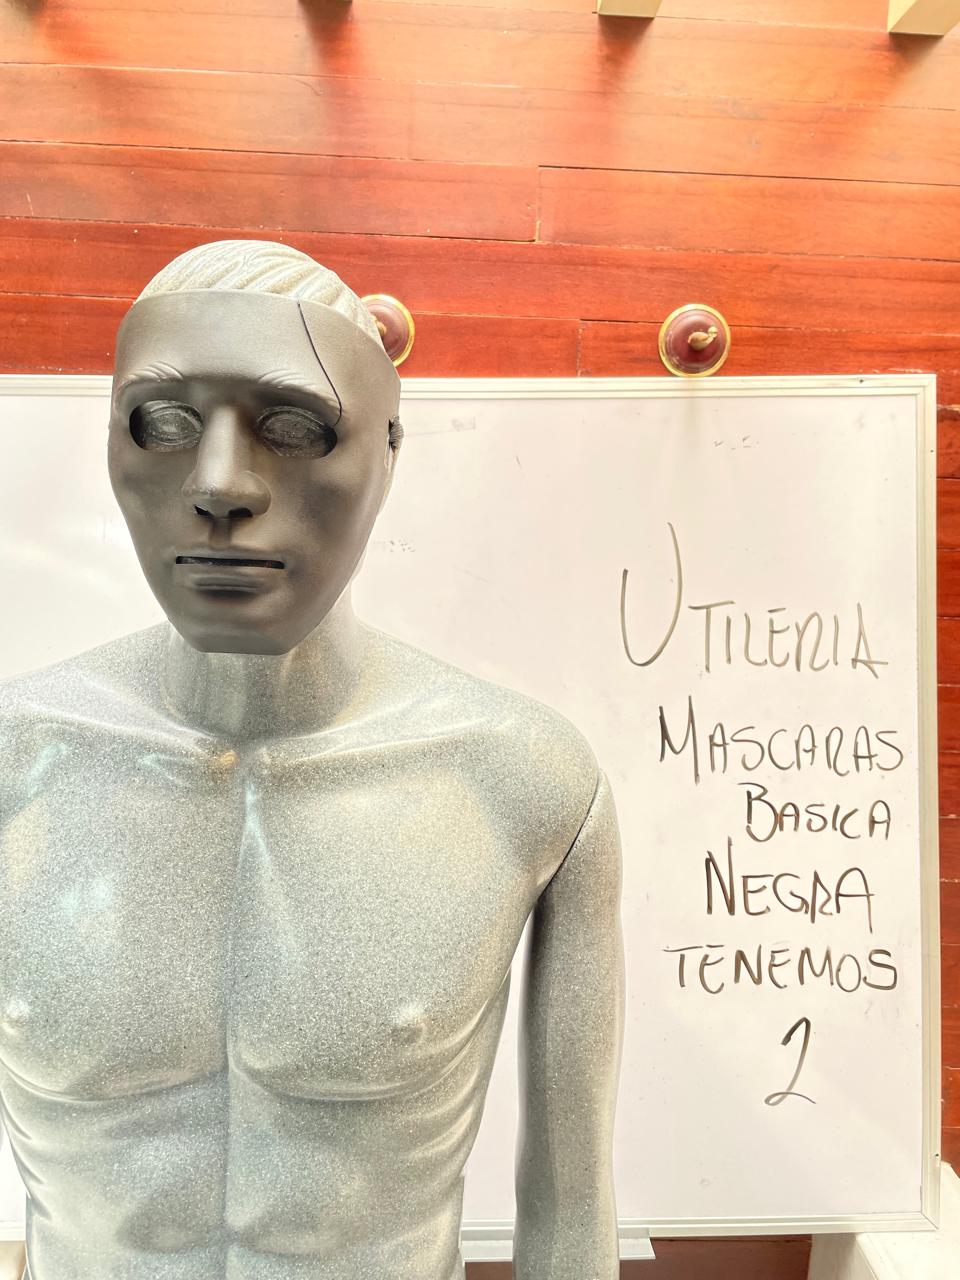 UTILERIA
MASCARAS
BASICA
NEGRA
TENEMOS
2